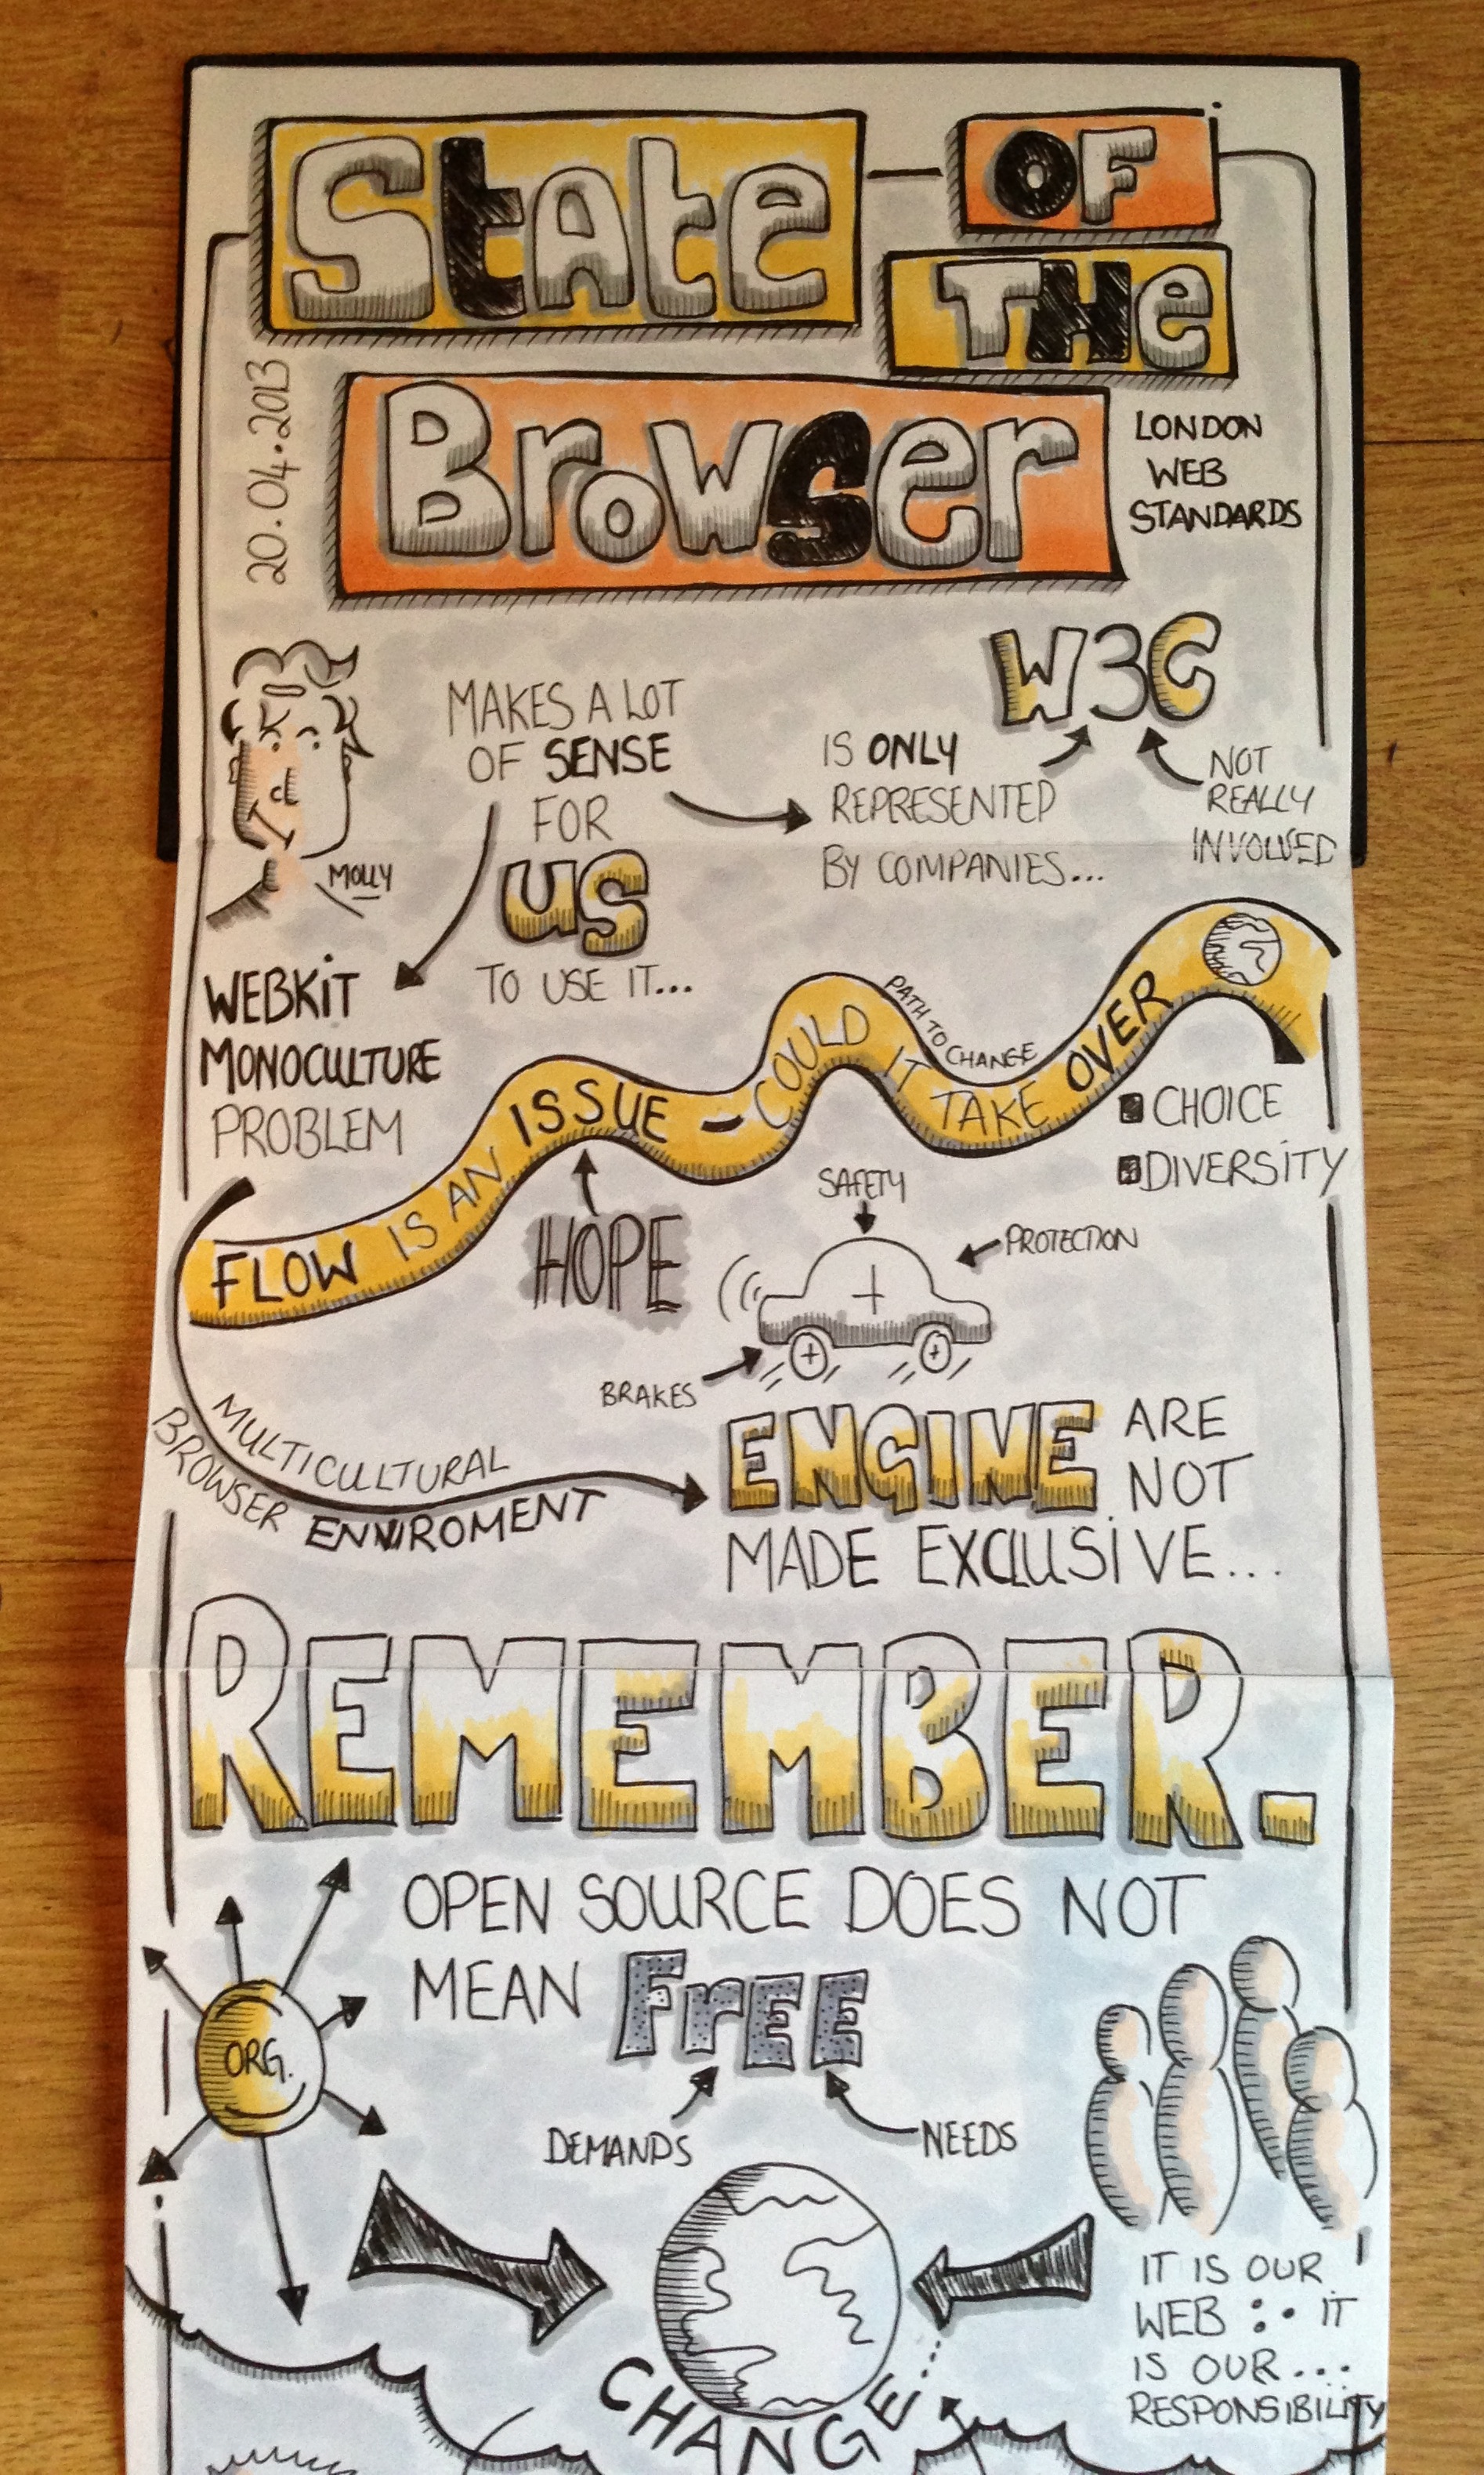 State OF
THE
Browser
20.04.2013
LONDON
WEB
STANDARDS
MOLLY
MAKES A LOT
OF SENSE
FOR
US
TO USE IT...
W3C
IS ONLY
REPRESENTED
BY COMPANIES...
NOT
REALLY
INVOLVED
WEBKIT
MONOCULTURE
PROBLEM
FLOW IS AN ISSUE - COULD IT TAKE OVER
PATH TO CHANGE
CHOICE
DIVERSITY
HOPE
SAFETY
PROTECTION
BRAKES
MULTICULTURAL
BROWSER ENNVIROMENT
ENGINE ARE
NOT
MADE EXCLUSIVE...
REMEMBER.
OPEN SOURCE DOES NOT
MEAN FrEE
ORG.
DEMANDS
NEEDS
IT IS OUR
WEB :. IT
IS OUR...
RESPONSIBILITY
CHANGE...